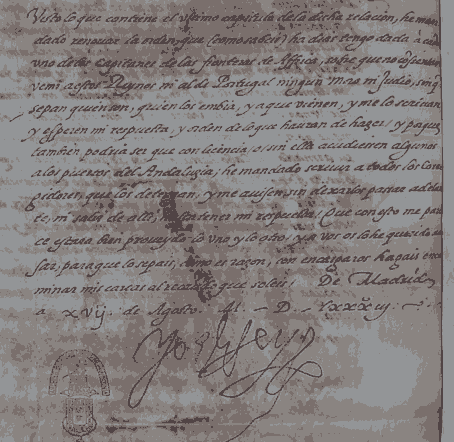 Visto lo que contiene el ultimo capitulo de la dicha relacion, he man
dado renovar la orden que (como sabeis) ha dias tengo dada a cada
uno de los capitanes de las fronteras de Africa, sobre que no
a estos Reynos ni al de Portugal ningun Moro ni Judio, sin q
sepan quien son, quien los embia, y a que vienen, y me lo
y esperen mi respuesta, y orden de lo que havran de hazer: y
tambien podria ser que con licencia, o sin ella acudiessen algunos
a los puertos del Andaluzia; he mandado scrivir a todos los Corre
gidores, que los detengan, y me avisen, sin dexarlos passar adelan
te, ni salir de alli, hasta tener mi respuesta: Que con esto me pare
ce estara bien proveydo lo uno y lo otro: y a vos os lo he querido
sar, para que lo sepais, como es razon, con encargaros hagais enca
minar mis cartas al recaudo que soleis: De Madrid
a xvij. de Agosto. M. D. Lxxx
Yo el Rey